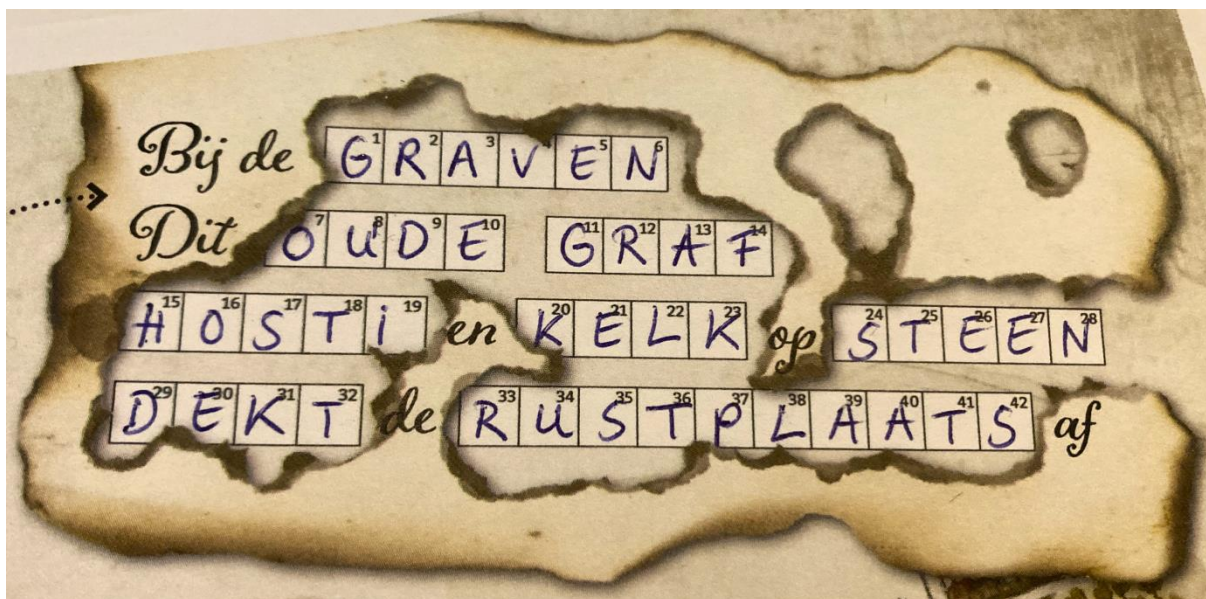 Bij de GRAVEN
Dit OUDE GRAF
HOSTI en KELK op STEEN
DEKT de RUSTPLAATS af